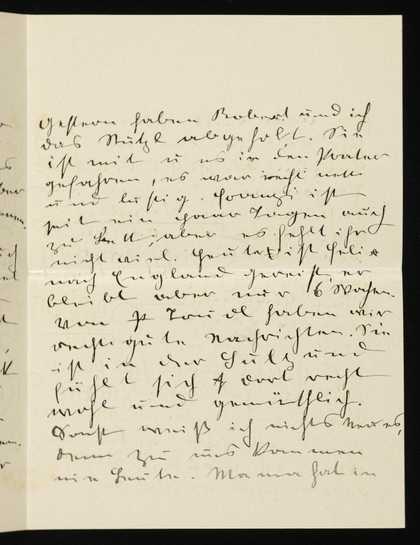 Gestern haben Robert und ich
das Stutzl abgeholt. Sie
ist mit u es in den Prater
gefahren, es war recht nett
und lustig. Franzi ist
seit ein paar Tagen auch
zu Bett, aber es fehlt ihr
nicht viel. Heute ist Felix
nach England gereist, er
bleibt aber nur 6 Wochen.
Von haben wir
recht gute Nachrichten. Sie
ist in der Sulz und
fühlt sich dort recht
wohl und gemütlich.
Sonst weiß ich nichts Neues,
denn zu uns kommen
nie Leute. Mama hat in